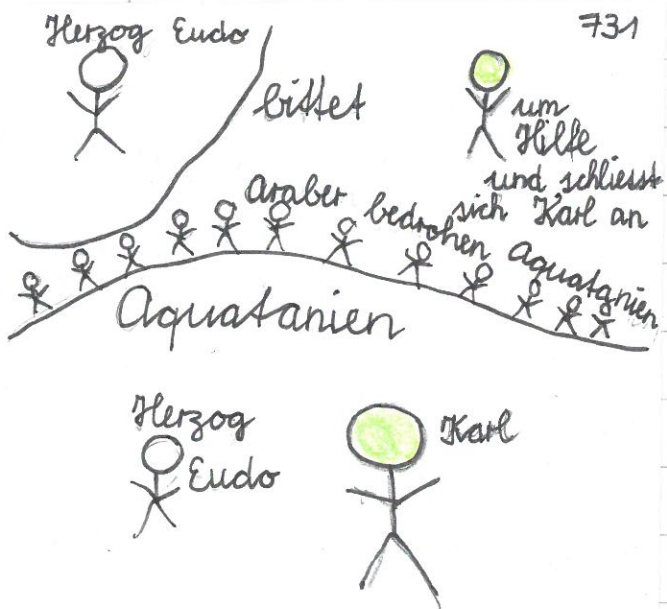 Herzog Eudo
731
bittet
um
Hilfe
und schliesst
sich Karl an
Araber bedrohen Aquatanien
Aquatanien
Herzog
Eudo
Karl